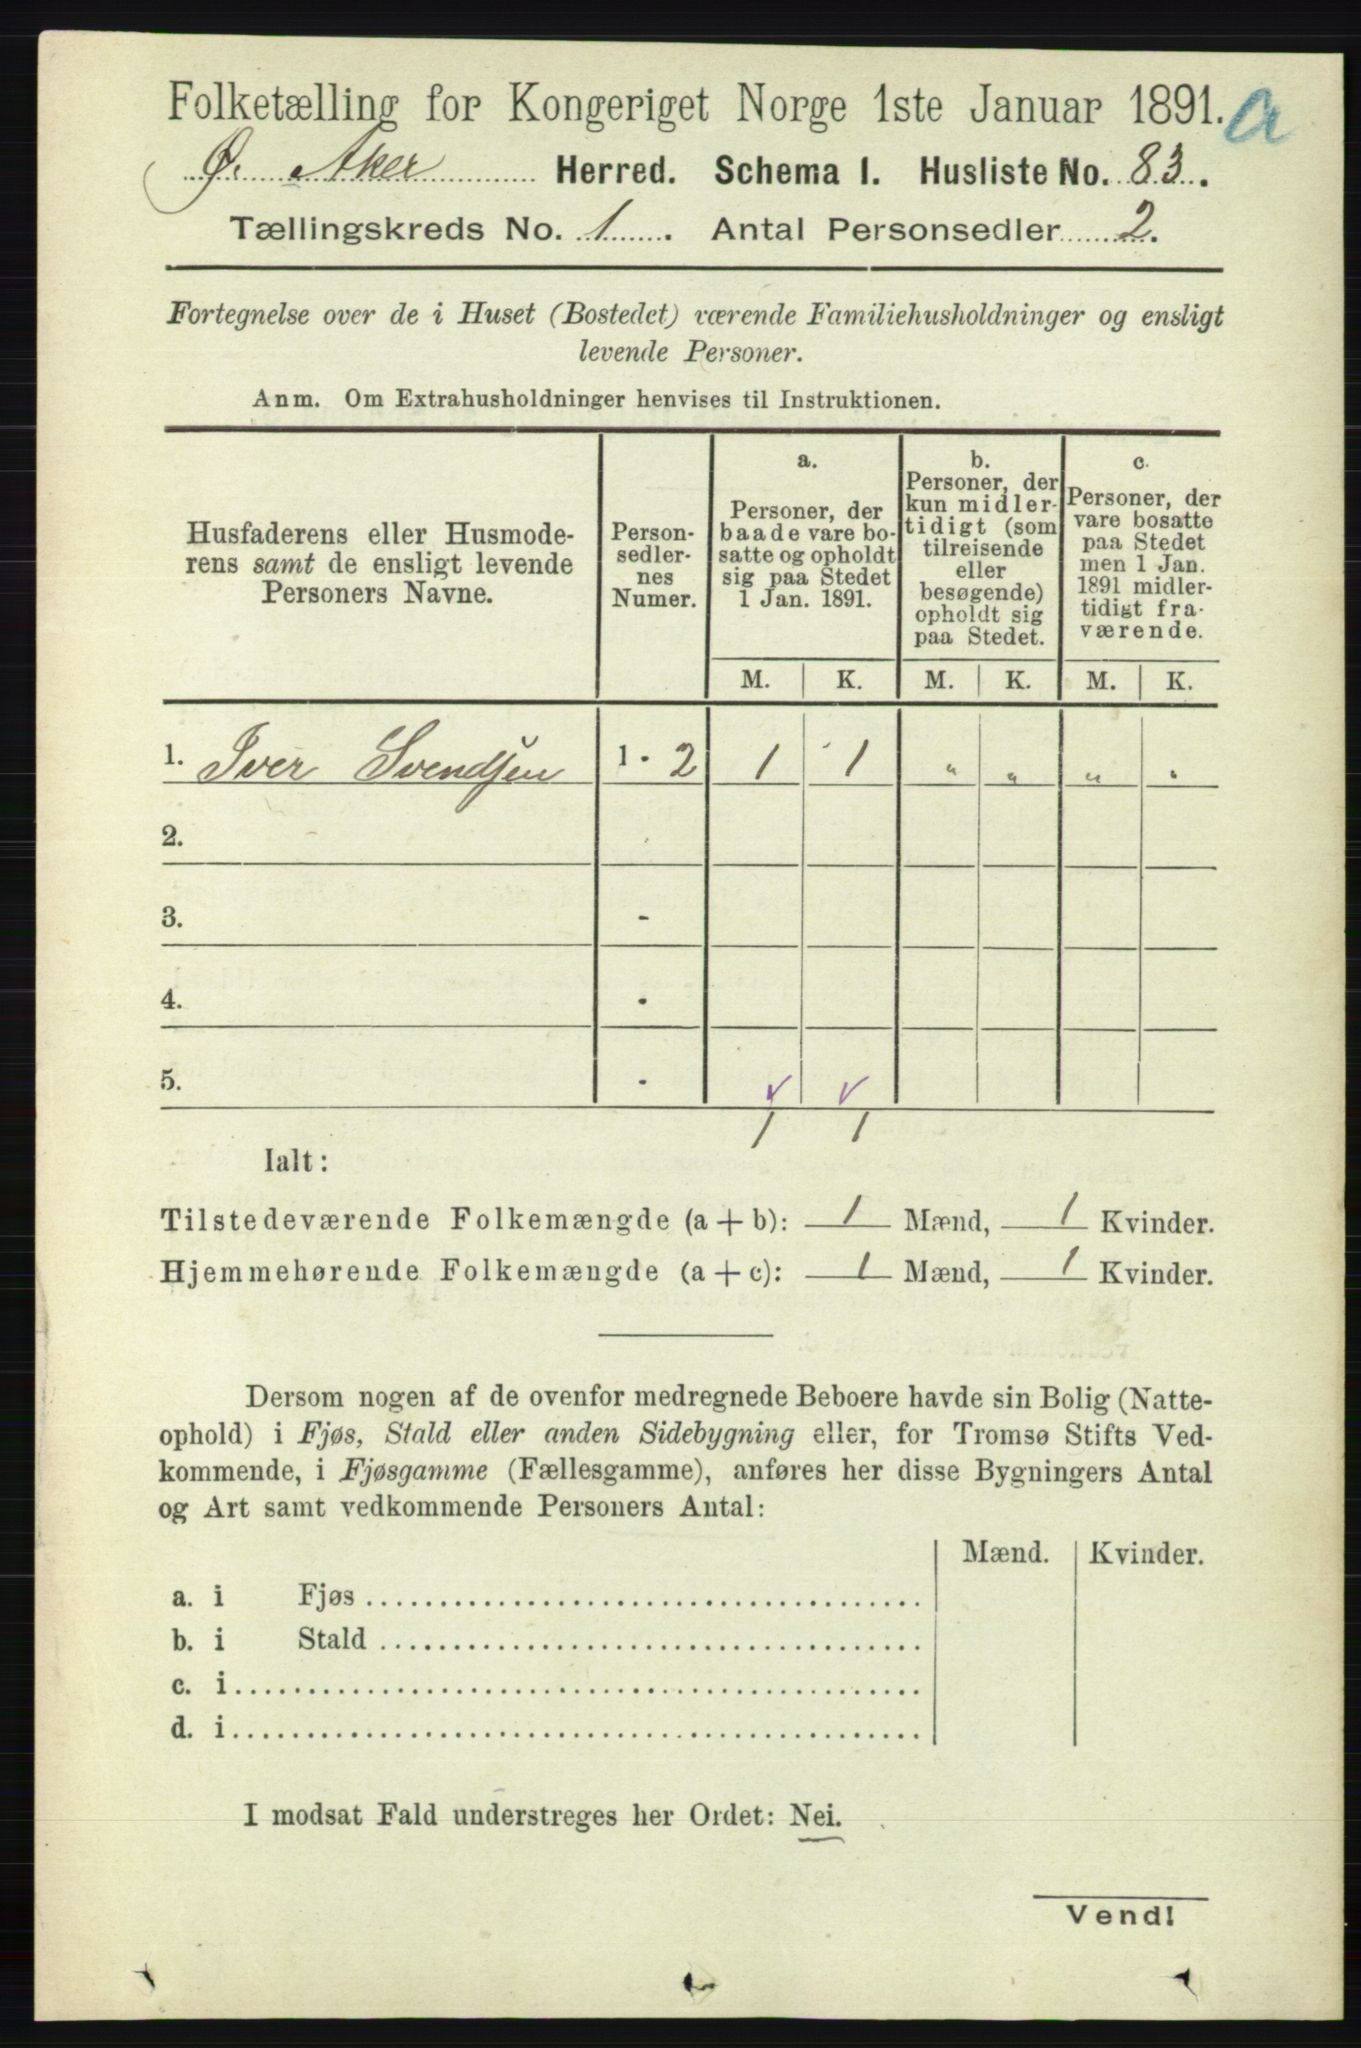 Folketælling for Kongeriget Norge 1ste Januar 1891. a
Ø. Aker Herred. Schema I. Husliste No. 83.
Tællingskreds No. 1. Antal Personsedler 2.
Fortegnelse over de i Huset (Bostedet) værende Familiehusholdninger og ensligt
levende Personer.
Anm. Om Extrahusholdninger henvises til Instruktionen.
Husfaderens eller Husmode-
rens samt de ensligt levende
Personers Navne.
Person-
sedler-
nes
Numer.
a.
Personer, der
baade vare bo-
satte og opholdt
sig paa Stedet
1 Jan. 1891.
b.
Personer, der
kun midler-
tidigt (som
tilreisende
eller
besøgende)
opholdt sig
paa Stedet.
c.
Personer, der
vare bosatte
paa Stedet
men 1 Jan.
1891 midler-
tidigt fra-
værende.
M. K. M. K. M. K.
1. Iver Svendsen 1 - 2 1 1 " " " "
2. -
3. -
4. -
5. -
1 1
Ialt:
Tilstedeværende Folkemængde (a + b): 1 Mænd, 1 Kvinder.
Hjemmehørende Folkemængde (a + c): 1 Mænd, 1 Kvinder.
Dersom nogen af de ovenfor medregnede Beboere havde sin Bolig (Natte-
ophold) i Fjøs, Stald eller anden Sidebygning eller, for Tromsø Stifts Ved-
kommende, i Fjøsgamme (Fællesgamme), anføres her disse Bygningers Antal
og Art samt vedkommende Personers Antal:
Mænd. Kvinder.
a. i Fjøs
b. i Stald
c. i
d. i
I modsat Fald understreges her Ordet: Nei.
Vend!